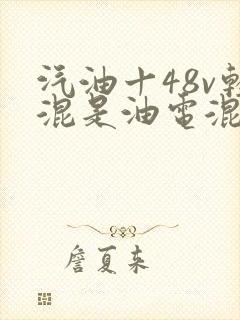 汽油十48v輕
混是油電混
詹夏来